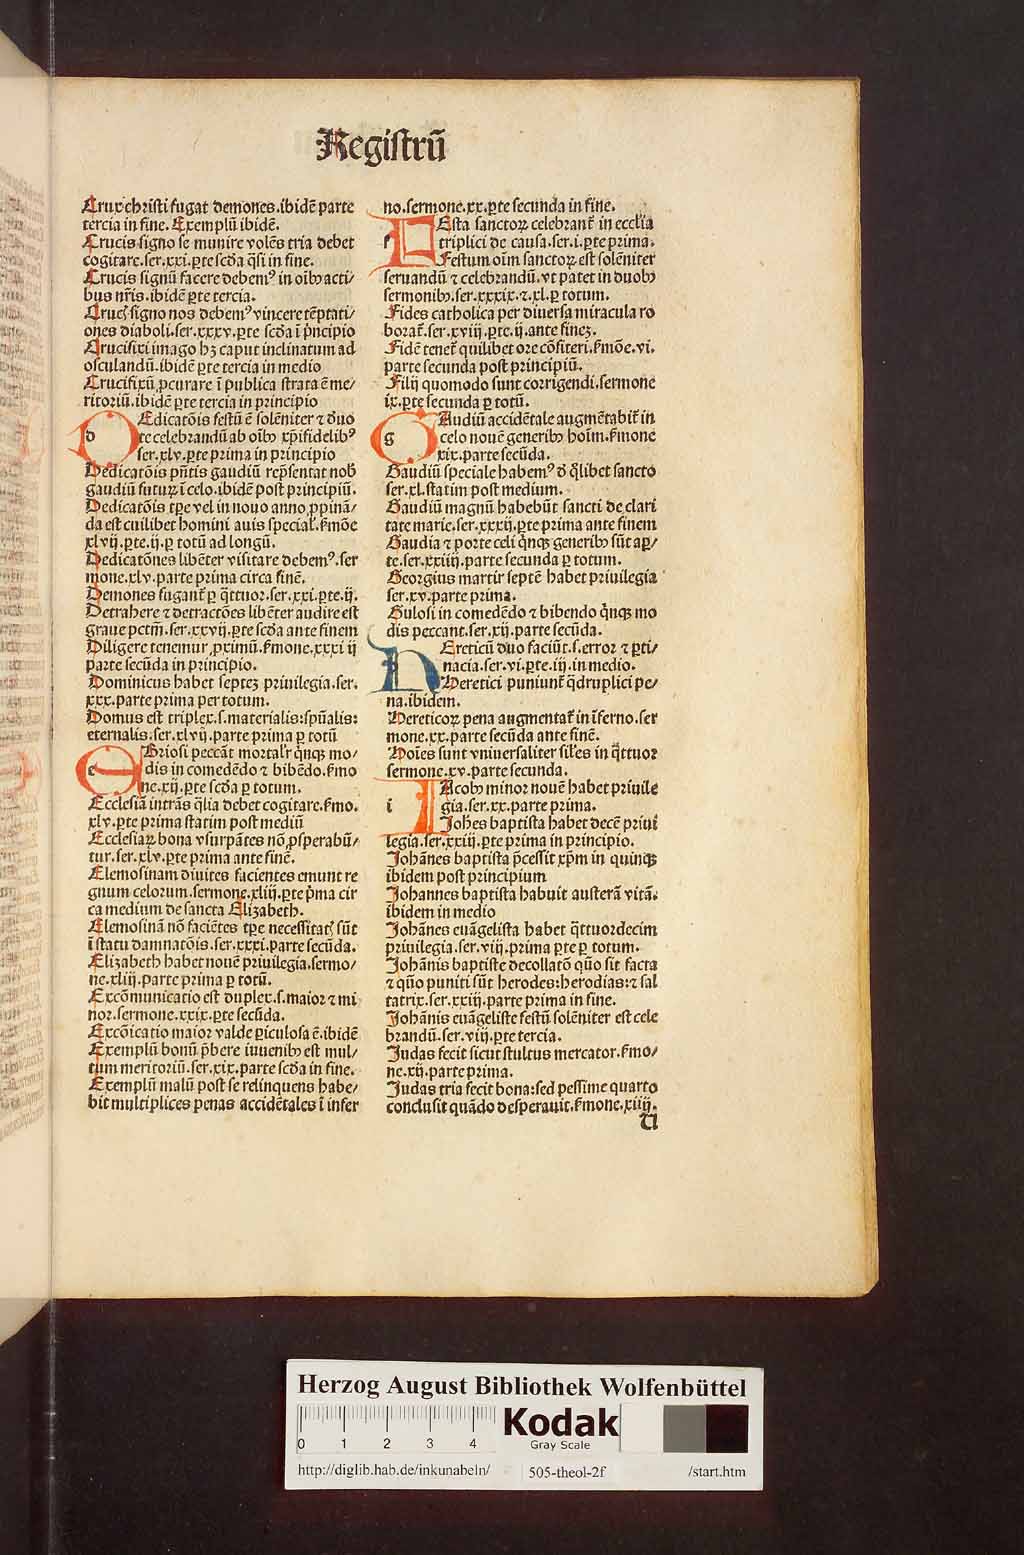 Registrū
Crux christi fugat demones.ibidē parte
tercia in fine. Exemplū ibidē.
Crucis signo se munire volēs tria debet
cogitare.ser.xxi.ꝑte scd̄a q̄si in fine.
Crucis signū facere debemꝰ in oībꝫ acti/
bus nr̄is.ibidē ꝑte tercia.
Crucꝭ signo nos debemꝰ vincere tēptati/
ones diaboli.ser.xxxv.ꝑte scd̄a ī pn̄cipio
Crucifixi imago hꝫ caput inclinatum ad
osculandū.ibidē ꝑte tercia in medio
Crucifixū ꝓcurare ī publica strata ē me/
ritoriū.ibidē ꝑte tercia in principio
d
DEdicatōis festū ē solēniter ⁊ d̄uo
te celebrandū ab oībꝫ xp̄ifidelibꝰ
ser.xlv.ꝑte prima in principio
Dedicatōis pn̄tis gaudiū rep̄sentat nob̄
gaudiū futuꝝ ī celo.ibidē post principiū.
Dedicatōis tꝑe vel in nouo anno ꝓpinā/
da est cuilibet homini auis special̄.s̄mōe
xlvij.ꝑte.ij.ꝑ totū ad longū.
Dedicatōnes libēter visitare debemꝰ.ser
mone.xlv.parte prima circa finē.
Demones fugant̄ ꝑ q̄ttuor.ser.xxi.ꝑte.ij.
Detrahere ⁊ detractōes libēter audire est
graue pctm̄.ser.xxvij.ꝑte scd̄a ante finem
Diligere tenemur ꝓximū.s̄mone.xxxi ij
parte secūda in principio.
Dominicus habet septeꝫ priuilegia.ser.
xxx.parte prima per totum.
Domus est triplex.s.materialis:spūalis:
eternalis.ser.xlvij.ꝑte prima ꝑ totū
e
EBriosi peccāt mortalr̄ q̄nqꝫ mo/
dis in comedēdo ⁊ bibēdo.s̄mo
ne.xij.ꝑte scd̄a ꝑ totum.
Ecclesiā intrās q̄lia debet cogitare.s̄mo.
xlv.ꝑte prima statim post mediū
Ecclesiaꝝ bona vsurpātes nō ꝓsperabū/
tur.ser.xlv.ꝑte prima ante finē.
Elemosinam diuites facientes emunt re
gnum celorum.sermone.xliij.ꝑte p̄ma cir
ca medium de sancta Elizabeth.
Elemosinā nō faciētes tꝑe necessitatꝭ sūt
ī statu damnatōis.ser.xxxi.parte secūda.
Elizabeth habet nouē priuilegia.sermo/
ne.xliij.parte prima ꝑ totū.
Excōmunicatio est duplex.s.maior ⁊ mi
nor.sermone.xxix.ꝑte secūda.
Excōicatio maior valde ꝑiculosa ē.ibidē
Exemplū bonū p̄bere iuuenibꝫ est mul/
tum meritoriū.ser.xix.parte scd̄a in fine.
Exemplū malū post se relinquens habe/
bit multiplices penas accidētales ī infer
no.sermone.xx.ꝑte secunda in fine.
f
FEsta sanctoꝝ celebrant̄ in eccl̄ia
triplici de causa.ser.i.ꝑte prima.
Festum oīm sanctoꝝ est solēniter
seruandū ⁊ celebrandū.vt patet in duobꝫ
sermonibꝫ.ser.xxxix.⁊.xl.ꝑ totum.
Fides catholica per diuersa miracula ro
borat̄.ser.xviij.ꝑte.ij.ante fineꝫ.
Fidē tenet̄ quilibet ore cōfiteri.s̄mōe.vi.
parte secunda post principiū.
Filij quomodo sunt corrigendi.sermone
ix.ꝑte secunda ꝑ totū.
g
GAudiū accidētale augmētabit̄ in
celo nouē generibꝫ hoīm.s̄mone
xix.parte secūda.
Gaudiū speciale habemꝰ d̄ q̄libet sancto
ser.xl.statim post medium.
Gaudiū magnū habebūt sancti de clari
tate marie.ser.xxxij.ꝑte prima ante finem
Gaudia ⁊ porte celi q̄nqꝫ generibꝫ sūt aꝑ/
te.ser.xxiiij.parte secunda ꝑ totum.
Georgius martir septē habet priuilegia
ser.xv.parte prima.
Gulosi in comedēdo ⁊ bibendo q̄nqꝫ mo
dis peccant.ser.xij.parte secūda.
h
HEreticū duo faciūt.s.error ⁊ ꝑti/
nacia.ser.vi.ꝑte.iij.in medio.
Heretici puniunt̄ q̄druplici pe/
na.ibidem.
Hereticoꝝ pena augmentat̄ in īferno.ser
mone.xx.parte secūda ante finē.
Hoīes sunt vniuersaliter siles in q̄ttuor
sermone.xv.parte secunda.
i
IAcobꝫ minor nouē habet priuile
gia.ser.xx.parte prima.
Johēs baptista habet decē priui
legia.ser.xxiij.ꝑte prima in principio.
Johānes baptista p̄cessit xp̄m in quinqꝫ
ibidem post principium
Johannes baptista habuit austerā vitā.
ibidem in medio
Johānes euāgelista habet q̄ttuordecim
priuilegia.ser.viij.prima ꝑte ꝑ totum.
Johānis baptiste decollatō quō sit facta
⁊ quō puniti sūt herodes:herodias:⁊ sal
tatrix.ser.xxiij.parte prima in fine.
Johānis euāgeliste festū solēniter est cele
brandū.ser.viij.ꝑte tercia.
Judas fecit sicut stultus mercator.s̄mo/
ne.xij.parte prima.
Judas tria fecit bona:sed pessime quarto
conclusit quādo desperauit.s̄mone.xiiij.
Herzog August Bibliothek Wolfenbüttel
0 1 2 3 4
Kodak
Gray Scale
http://diglib.hab.de/inkunabeln/ 505-theol-2f /start.htm